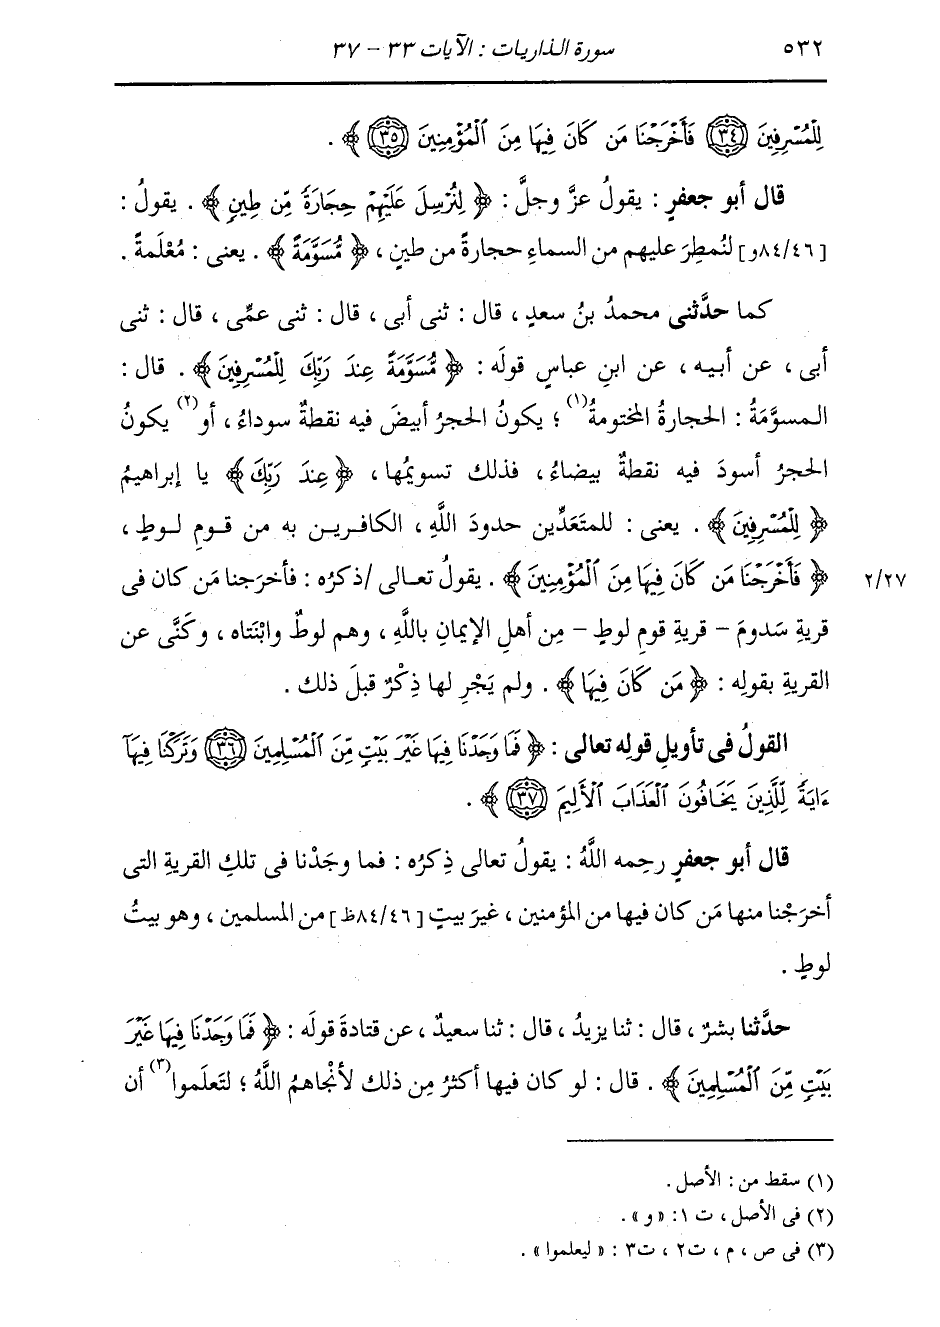 ٥٣٢ سورة الذاريات : الآيات ٣٣ - ٣٧
لِلْمُسْرِفِينَ ٣٤ فَأَخْرَجْنَا مَن كَانَ فِيهَا مِنَ ٱلْمُؤْمِنِينَ ٣٥ ﴾ .
قال أبو جعفرٍ : يقولُ عزَّ وجلَّ : ﴿ لِنُرْسِلَ عَلَيْهِمْ حِجَارَةً مِّن طِينٍ ﴾ . يقولُ :
[٨٤/٤٦و] لنُمطِرَ عليهم من السماءِ حجارةً من طينٍ ، ﴿ مُّسَوَّمَةً ﴾ . يعنى : مُعْلَمةً .
كما حدَّثنى محمدُ بنُ سعدٍ ، قال : ثنى أبى ، قال : ثنى عمِّى ، قال : ثنى
أبى ، عن أبيه ، عن ابنِ عباسٍ قولَه : ﴿ مُّسَوَّمَةً عِندَ رَبِّكَ لِلْمُسْرِفِينَ ﴾ . قال :
المسوَّمَةُ : الحجارةُ المختومةُ(١) ؛ يكونُ الحجرُ أبيضَ فيه نقطةٌ سوداءُ ، أو(٢) يكونُ
الحجرُ أسودَ فيه نقطةٌ بيضاءُ ، فذلك تسويمُها ، ﴿ عِندَ رَبِّكَ ﴾ يا إبراهيمُ
﴿ لِلْمُسْرِفِينَ ﴾ . يعنى : للمتَعَدِّين حدودَ اللَّهِ ، الكافرين به من قومِ لوطٍ ،
﴿ فَأَخْرَجْنَا مَن كَانَ فِيهَا مِنَ ٱلْمُؤْمِنِينَ ﴾ . يقولُ تعالى /ذكرُه : فأخرَجنا مَن كان فى ٢/٢٧
قريةِ سَدومَ - قريةِ قومِ لوطٍ - مِن أهلِ الإيمانِ باللَّهِ ، وهم لوطٌ وابْنَتاه ، وكَنَّى عن
القريةِ بقولِه : ﴿ مَن كَانَ فِيهَا ﴾ . ولم يَجْرِ لها ذِكْرٌ قبلَ ذلك .
القولُ فى تأويلِ قولِه تعالى : ﴿ فَمَا وَجَدْنَا فِيهَا غَيْرَ بَيْتٍ مِّنَ ٱلْمُسْلِمِينَ ٣٦ وَتَرَكْنَا فِيهَآ
ءَايَةً لِّلَّذِينَ يَخَافُونَ ٱلْعَذَابَ ٱلْأَلِيمَ ٣٧ ﴾ .
قال أبو جعفرٍ رحِمه اللَّهُ : يقولُ تعالى ذِكرُه : فما وجَدْنا فى تلكِ القريةِ التى
أخرَجْنا منها مَن كان فيها من المؤمنين ، غيرَ بيتٍ [٨٤/٤٦ظ] من المسلمين ، وهو بيتُ
لوطٍ .
حدَّثنا بشرٌ ، قال : ثنا يزيدُ ، قال : ثنا سعيدٌ ، عن قتادةَ قولَه : ﴿ فَمَا وَجَدْنَا فِيهَا غَيْرَ
بَيْتٍ مِّنَ ٱلْمُسْلِمِينَ ﴾ . قال : لو كان فيها أكثرُ مِن ذلك لأنْجاهمُ اللَّهُ ؛ لتَعلَموا(٣) أن
(١) سقط من : الأصل .
(٢) فى الأصل ، ت ١ : « و » .
(٣) فى ص ، م ، ت٢ ، ت٣ : « ليعلموا » .